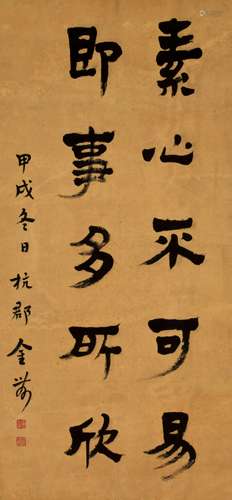 素心不可易
即事多所欣
甲戌冬日杭郡金農